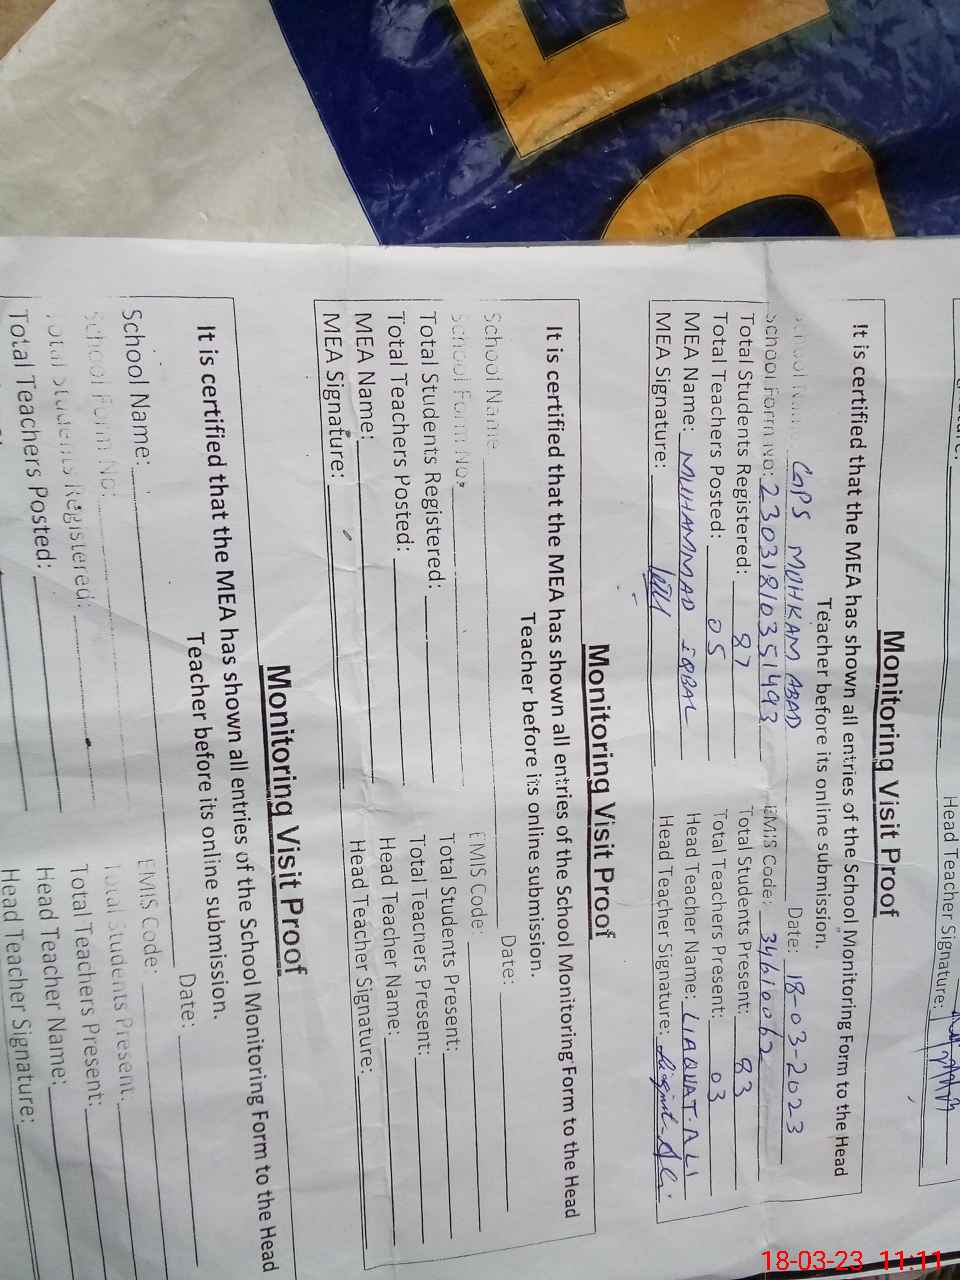 Head Teacher Signature:
Monitoring Visit Proof
It is certified that the MEA has shown all entries of the School Monitoring Form to the Head
Teacher before its online submission.
School Name GPS MOHKAM ABAD Date: 18-03-2023
School Form No: 23031810351493 EMIS Code: 34610062
Total Students Registered: 87 Total Students Present: 83
Total Teachers Posted: 05 Total Teachers Present: 03
MEA Name: MUHAMMAD IQBAL Head Teacher Name: LIAQUAT ALI
MEA Signature: Head Teacher Signature: Liaqat Ali
Monitoring Visit Proof
It is certified that the MEA has shown all entries of the School Monitoring Form to the Head
Teacher before its online submission.
School Name Date:
School Form No: EMIS Code:
Total Students Registered: Total Students Present:
Total Teachers Posted: Total Teachers Present:
MEA Name: Head Teacher Name:
MEA Signature: Head Teacher Signature:
Monitoring Visit Proof
It is certified that the MEA has shown all entries of the School Monitoring Form to the Head
Teacher before its online submission.
School Name: Date:
School Form No: EMIS Code:
Total Students Registered: Total Students Present:
Total Teachers Posted: Total Teachers Present:
Head Teacher Name:
Head Teacher Signature:
18-03-23 11:11